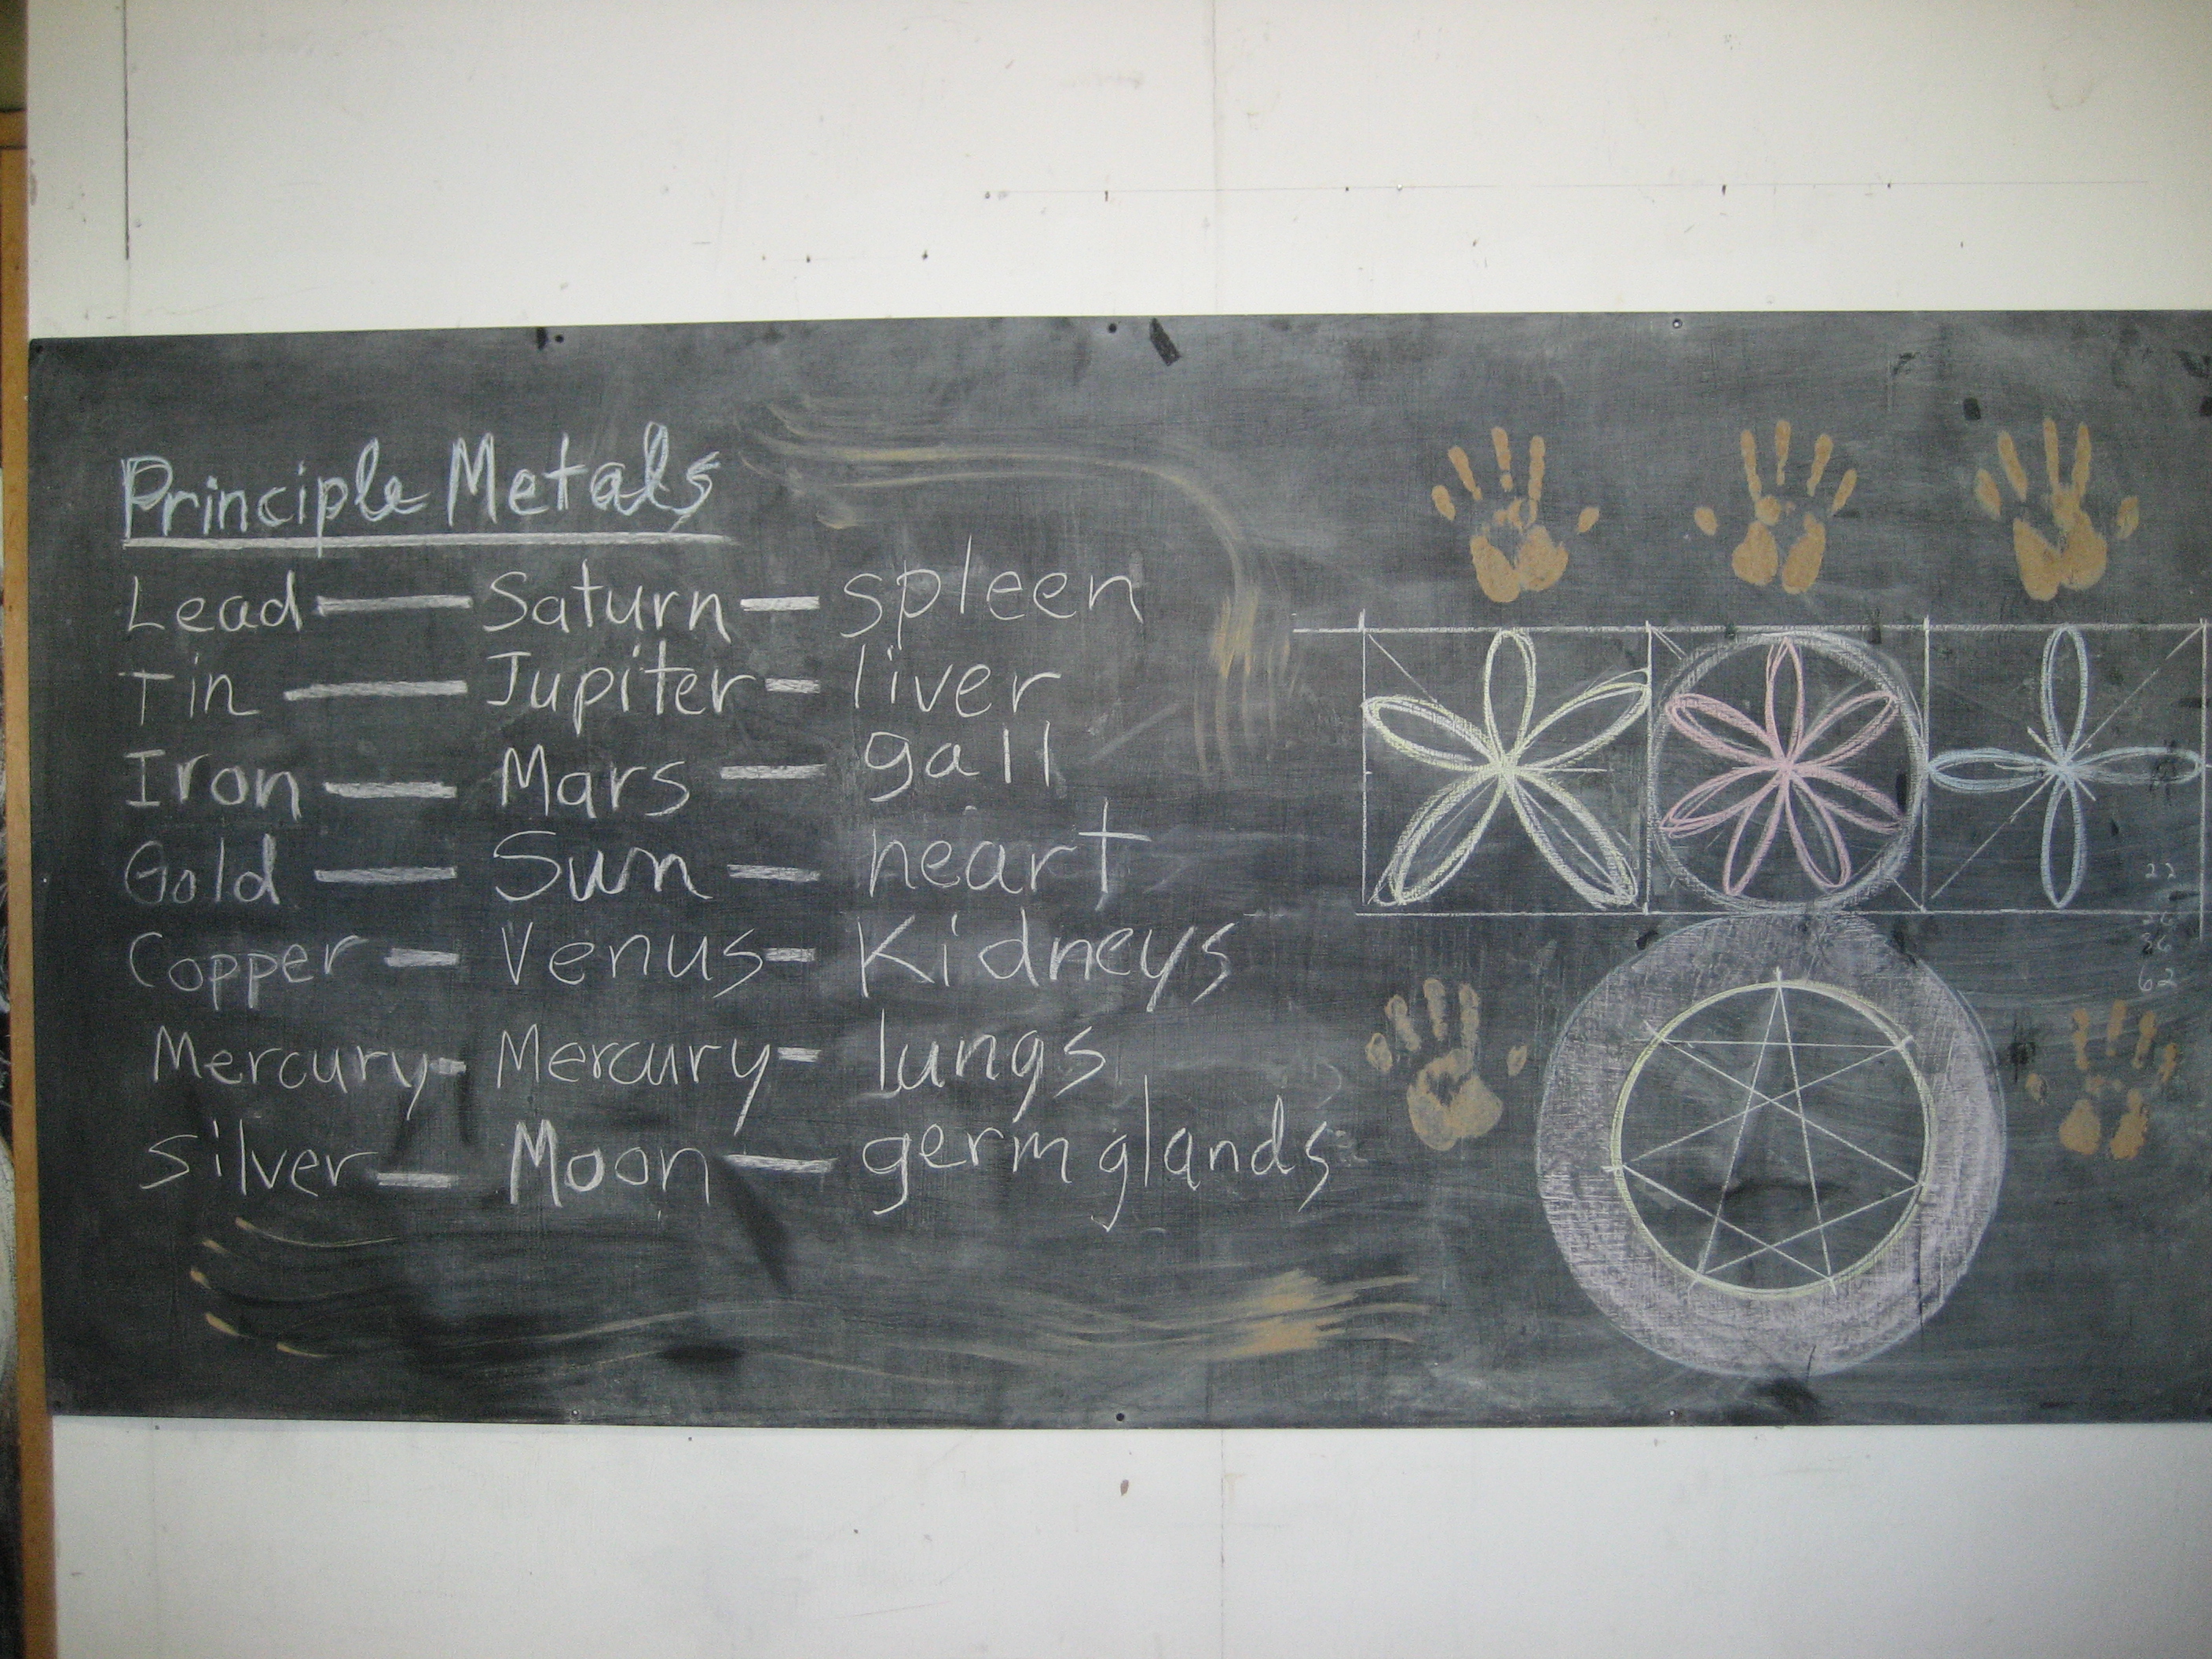 Principle Metals
Lead — Saturn — spleen
Tin — Jupiter — liver
Iron — Mars — gall
Gold — Sun — heart
Copper — Venus — Kidneys
Mercury — Mercury — lungs
Silver — Moon — germ glands
22
36
62